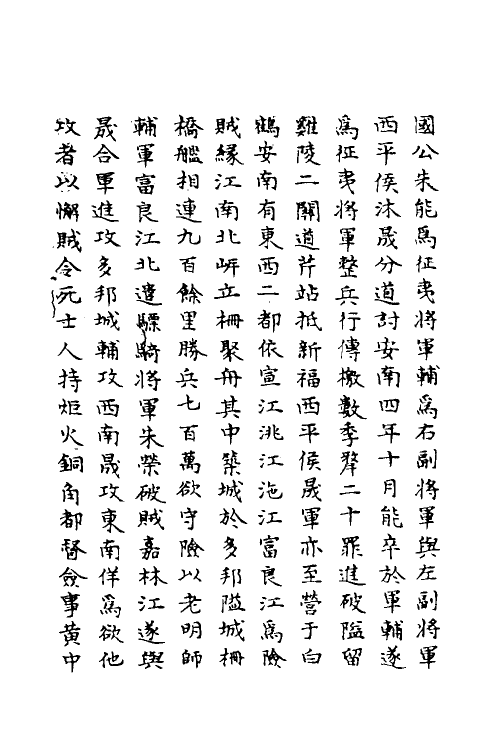 國公朱能爲征夷將軍輔爲右副將軍與左副將軍
西平侯沐晟分道討安南四年十月能卒於軍輔遂
爲征夷將軍整兵行傳檄數季犛二十罪進破隘留
雞陵二關道芹站抵新福西平侯晟軍亦至營于白
鶴安南有東西二都依宣江洮江沲江富良江爲險
賊緣江南北岍立柵聚舟其中築城於多邦隘城柵
橋艦相連九百餘里勝兵七百萬欲守險以老明師
輔軍富良江北遣驃騎將軍朱榮破賊嘉林江遂與
晟合軍進攻多邦城輔攻西南晟攻東南佯爲欲他
攻者以懈賊令死士人持炬火銅角都督僉事黄中